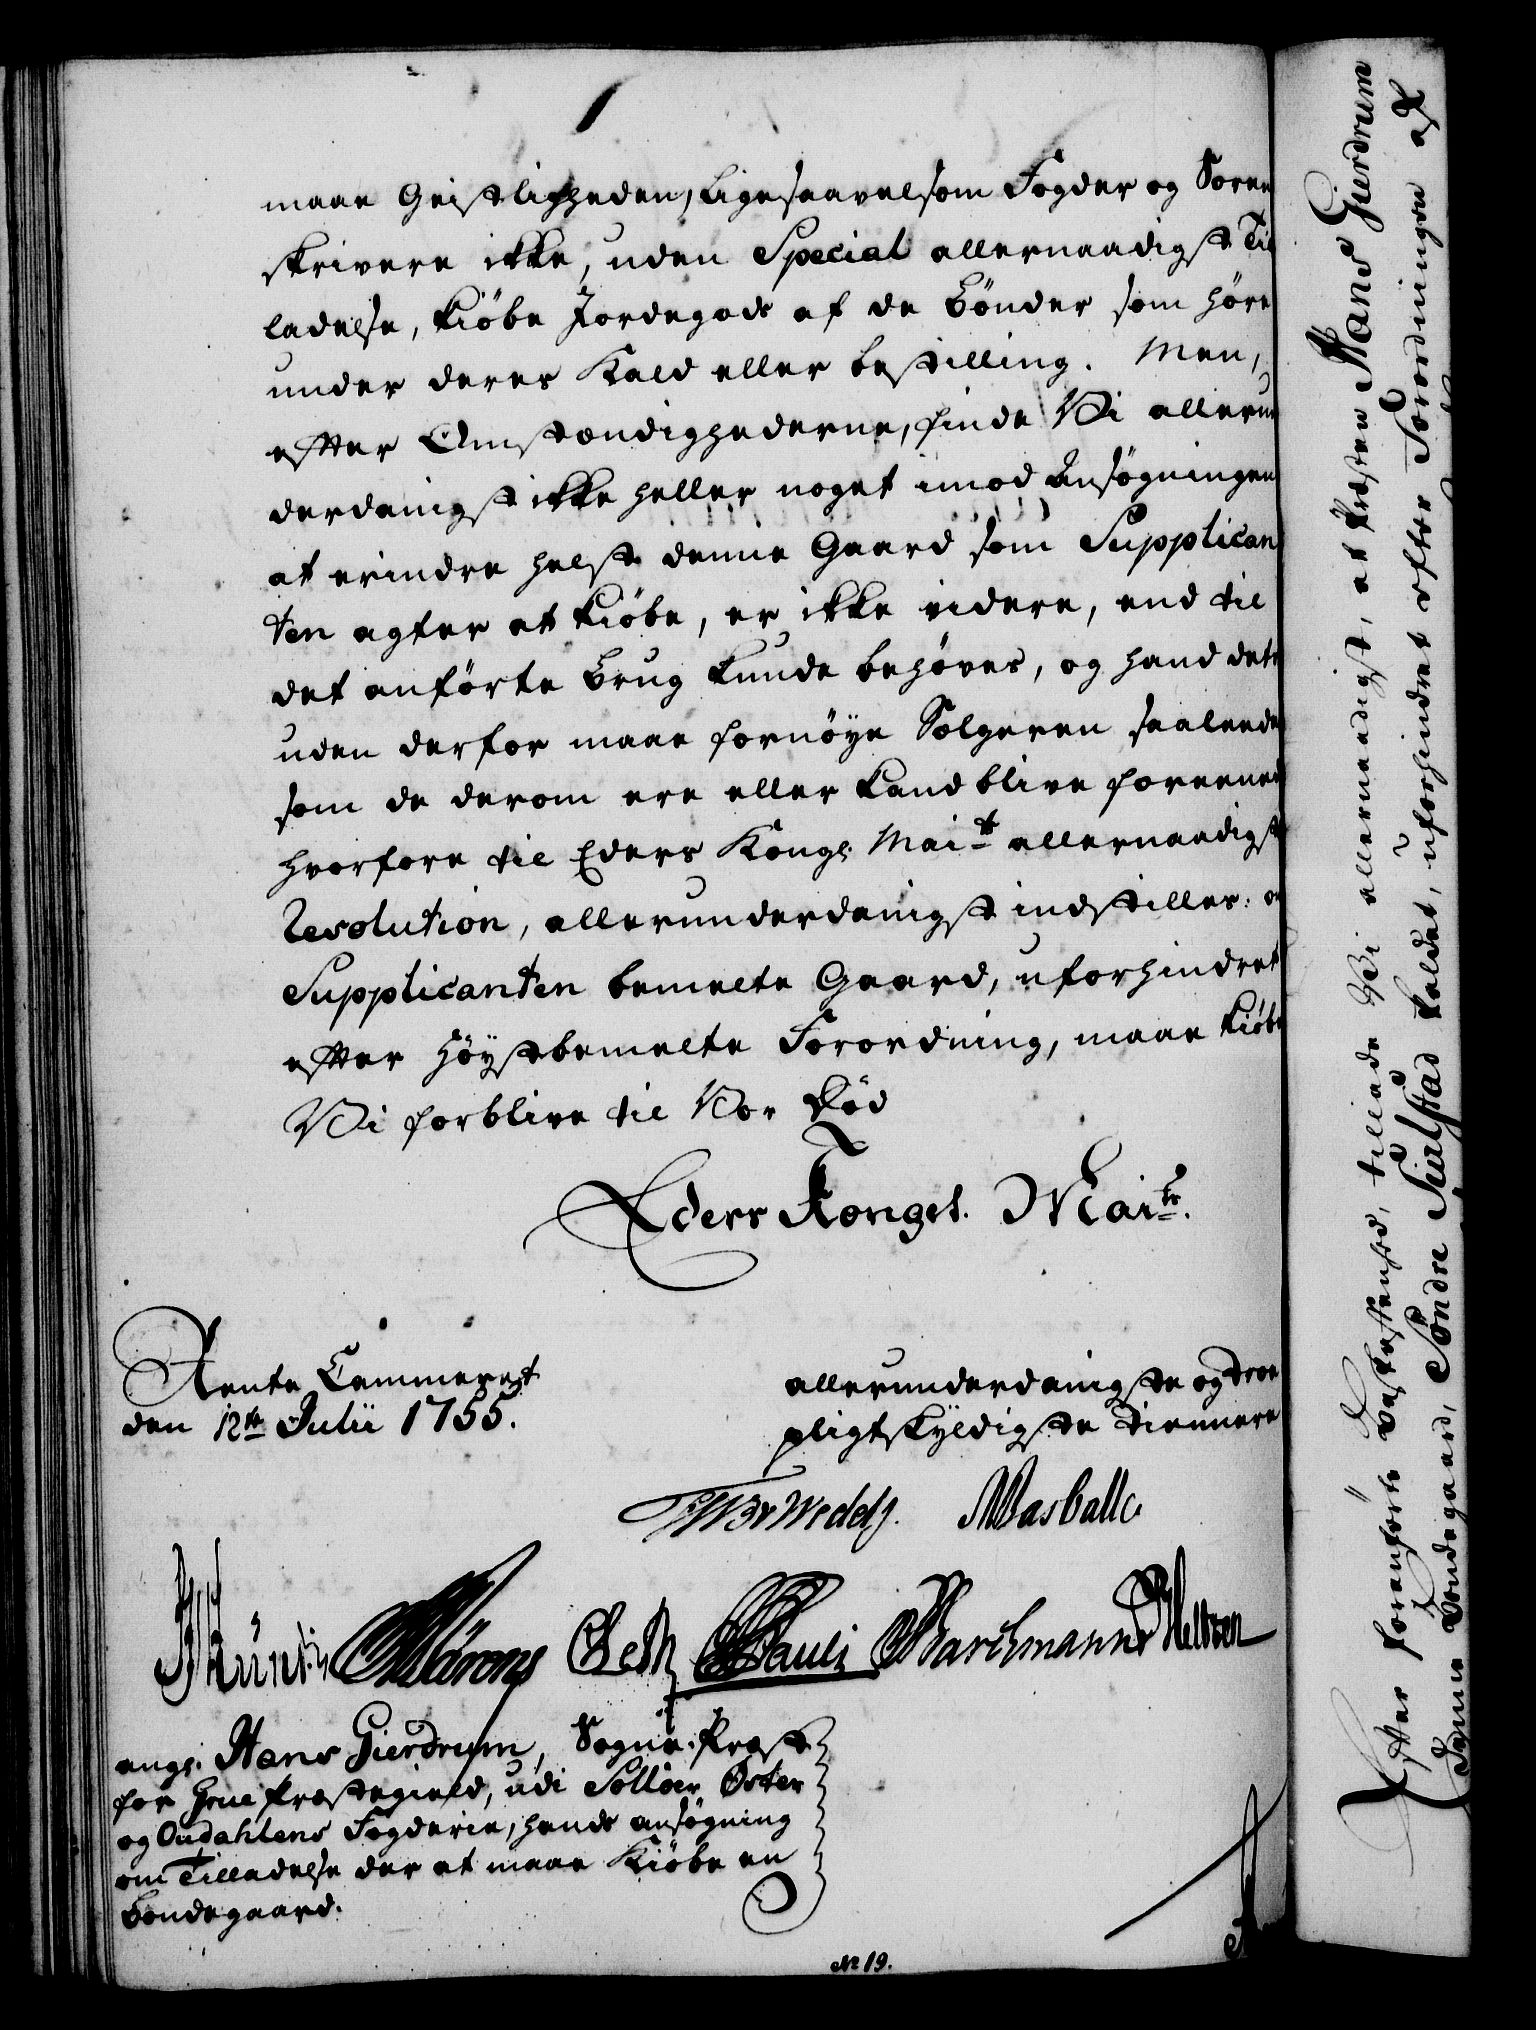 maae Geistligheden, ligesaavelsom Fogder og Soren
skrivere ikke, uden Special allernaadigst Til
ladelse, kiøbe Jordegods af de Bønder som høre
under deres Kald eller bestilling. Men,
efter Omstændighederne, finde Vi allerun
derdanigst ikke heller noget imod Ansøgningen
at erindre helst denne Gaard som Supplican
ten agter at kiøbe, er ikke videre, end til
det anførte Brug kunde behøves, og hand des
uden derfor maae fornøye Sælgeren saaleedes
som de derom ere eller kand blive foreenede
hvorfore til Eders Kongl. Mait allernaadigst
Resolution, allerunderdanigst indstilles: om
Supplicanten bemelte Gaard, uforhindret
efter høystbemelte Forordning, maae kiøbe
Vi forblive til Vor Død
Eders Kongel. Maits.
Rente Cammeret
den 12te Julii 1755.
allerunderdanigste og troe
pligtskyldigste Tiennere
Wasballe
Pauli Barchmann
ang. Hans Gierdrum, Sogne-Præst
for Grue Præstegield, udi Solløer Øster
og Oudahlens Fogderie, hands ansøgning
om Tilladelse der at maae Kiøbe en
Bondegaard.
No 19.
Efter foranførte Beskaffenhed, tillade Vi allernaadigst, at Præsten Hans Gierdrum
denne Bondegaard, Søndre Sulstad kaldet, uforhindret efter Forordningen af